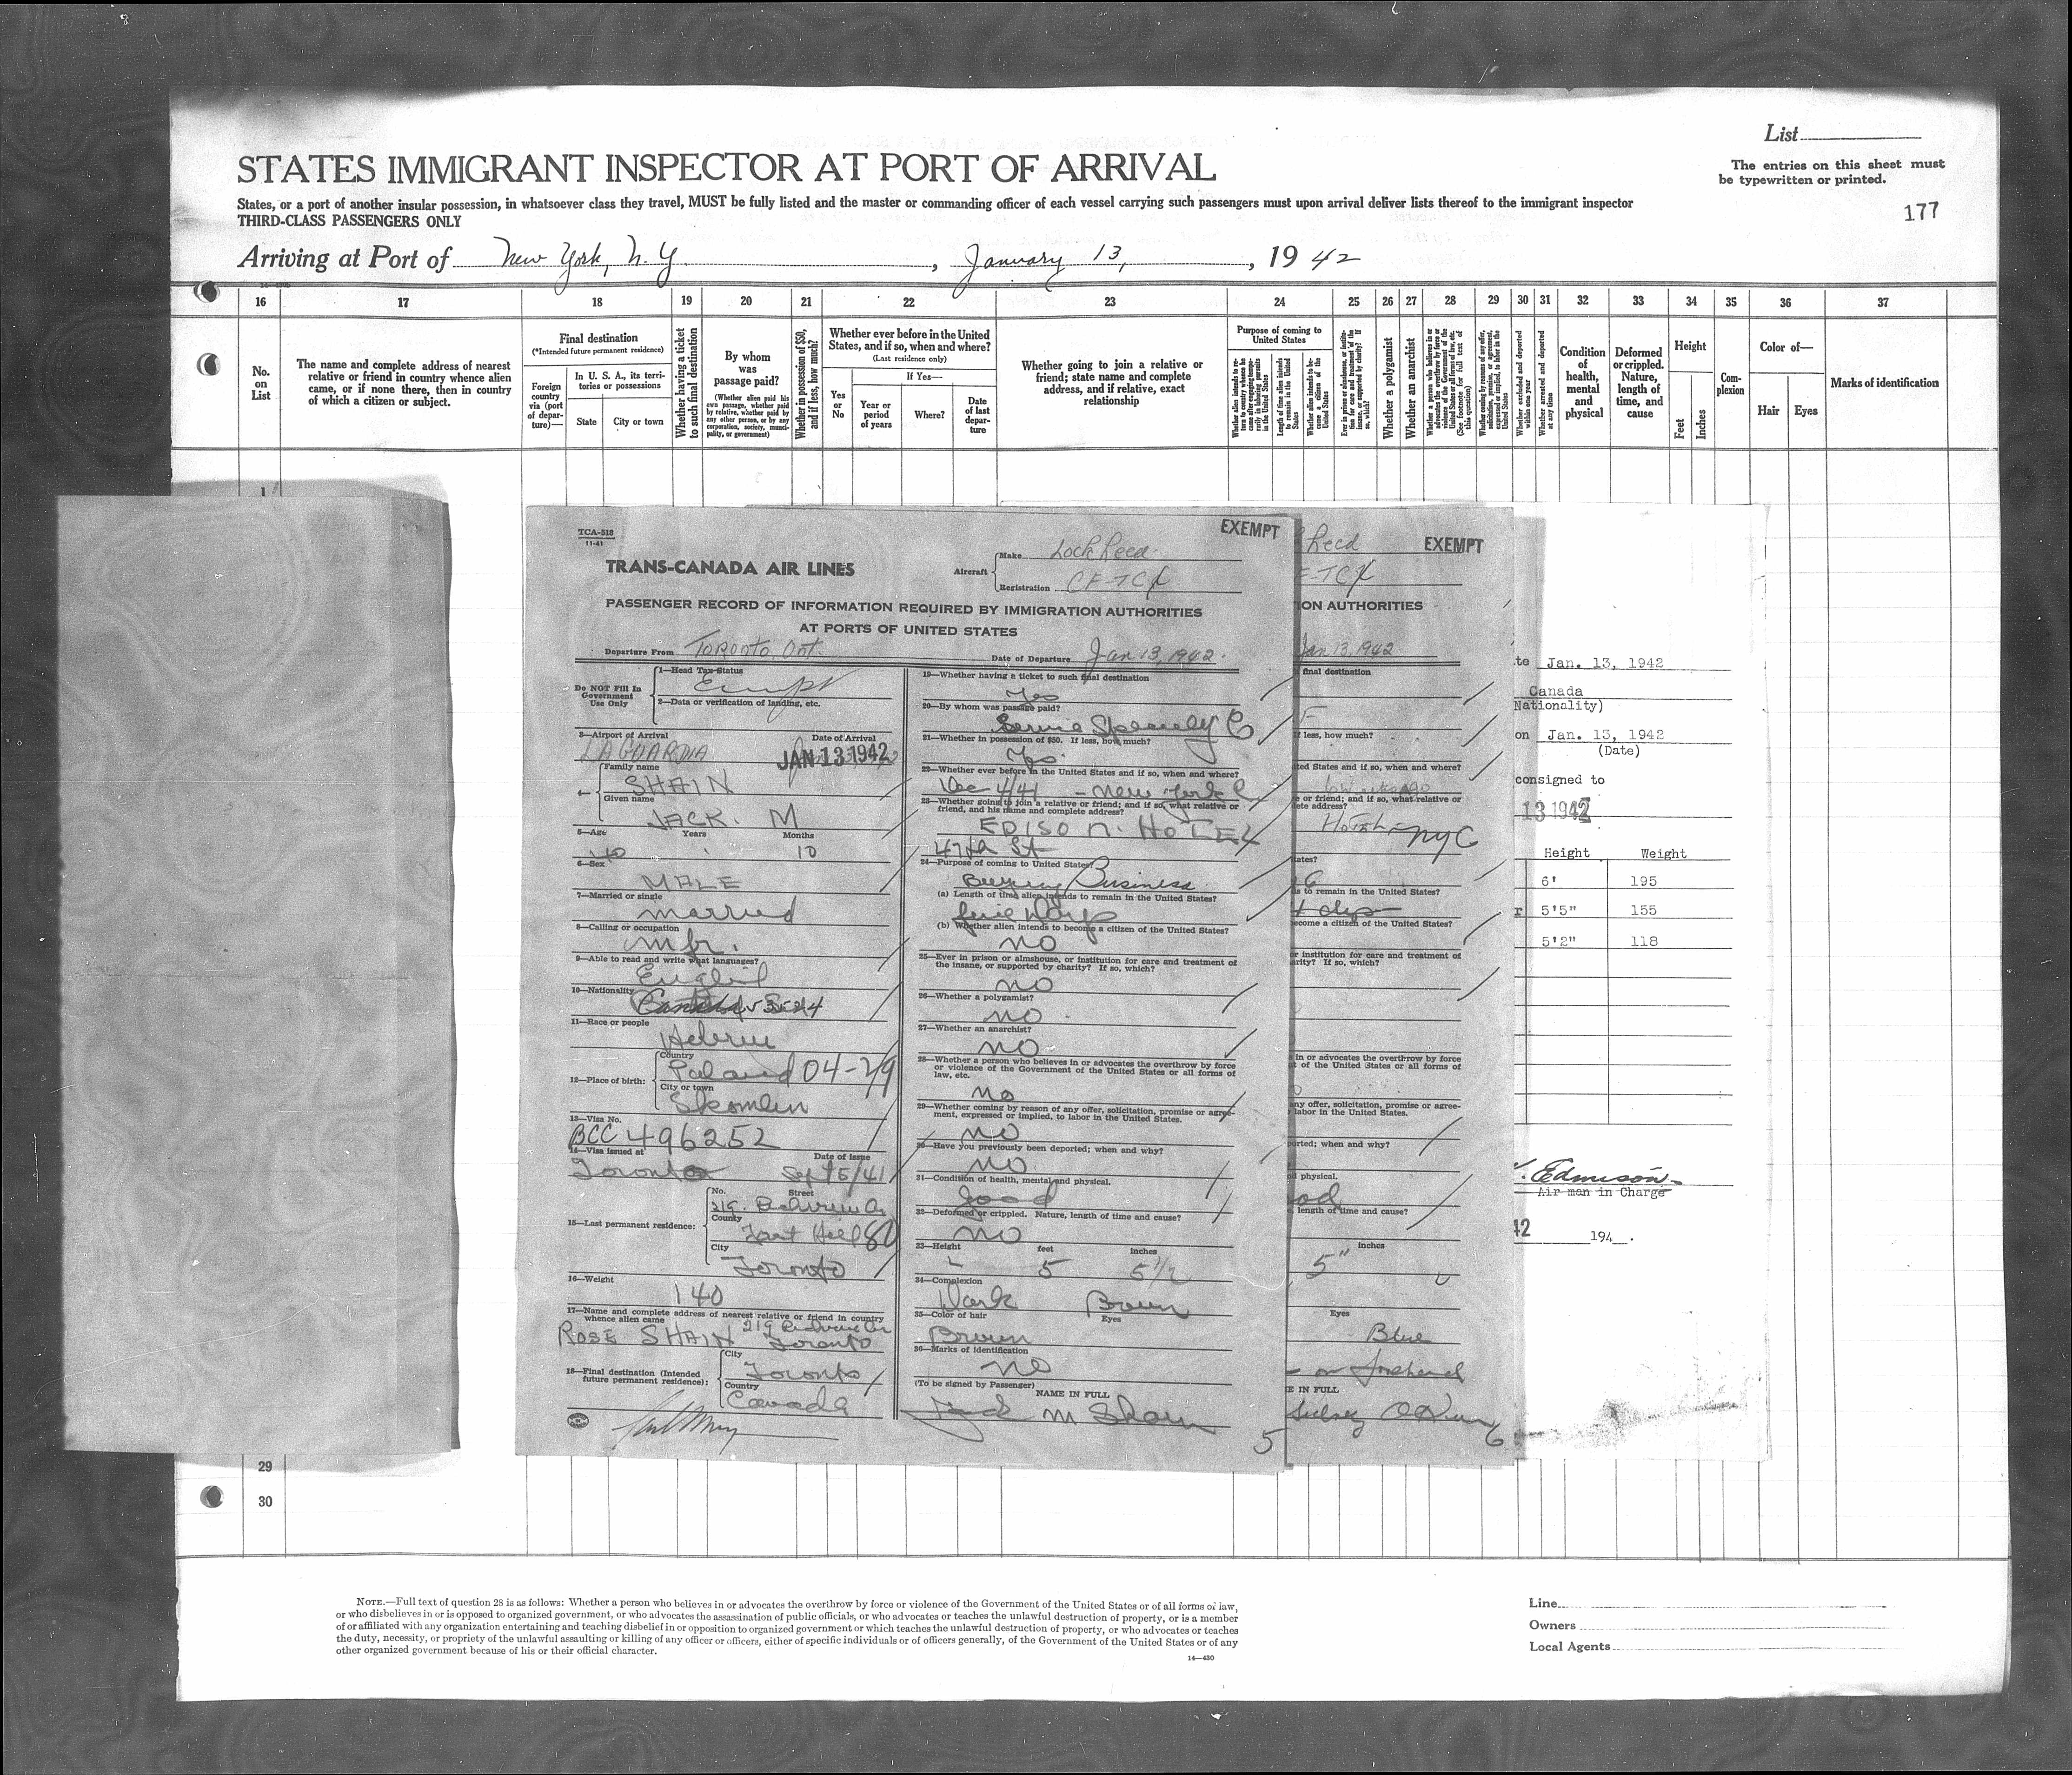 List
The entries on this sheet must
be typewritten or printed.
177
STATES IMMIGRANT INSPECTOR AT PORT OF ARRIVAL
States, or a port of another insular possession, in whatsoever class they travel, MUST be fully listed and the master or commanding officer of each vessel carrying such passengers must upon arrival deliver lists thereof to the immigrant inspector
THIRD-CLASS PASSENGERS ONLY
Arriving at Port of New York, N.Y. , January 13, , 19 42
16 17 18 19 20 21 22 23 24 25 26 27 28 29 30 31 32 33 34 35 36 37
No.
on
List
The name and complete address of nearest
relative or friend in country whence alien
came, or if none there, then in country
of which a citizen or subject.
Final destination
(*Intended future permanent residence)
Foreign
country
via (port
of depar-
ture)—
In U. S. A., its terri-
tories or possessions
State
City or town
Whether having a ticket
to such final destination
By whom
was
passage paid?
(Whether alien paid his
own passage, whether paid
by relative, whether paid by
any other person, or by any
corporation, society, munici-
pality, or government)
Whether in possession of $50,
and if less, how much?
Whether ever before in the United
States, and if so, when and where?
(Last residence only)
If Yes—
Yes
or
No
Year or
period
of years
Where?
Date
of last
depar-
ture
Whether going to join a relative or
friend; state name and complete
address, and if relative, exact
relationship
Purpose of coming to
United States
Whether a polygamist
Whether an anarchist
Whether arrested and deported
at any time
Condition
of
health,
mental
and
physical
Deformed
or crippled.
Nature,
length of
time, and
cause
Height
Feet
Inches
Com-
plexion
Color of—
Hair
Eyes
Marks of identification
1
TCA-518
11-41
EXEMPT
TRANS-CANADA AIR LINES
Aircraft
Make Lockheed
Registration CF-TCX
PASSENGER RECORD OF INFORMATION REQUIRED BY IMMIGRATION AUTHORITIES
AT PORTS OF UNITED STATES
Departure From TORONTO, Ont.
Date of Departure Jan 13, 1942.
Do NOT Fill In
Government
Use Only
1—Head Tax Status
Exempt
2—Data or verification of landing, etc.
3—Airport of Arrival Date of Arrival
LAGUARDIA JAN 13 1942
4— Family name
SHAIN
Given name
JACK. M
5—Age Years Months
40 10
6—Sex
MALE
7—Married or single
married
8—Calling or occupation
mfr.
9—Able to read and write what languages?
English
10—Nationality
11—Race or people
Hebrew
12—Place of birth:
Country
Poland 04-2/9
City or town
13—Visa No.
BCC 496252
14—Visa issued at Date of Issue
Toronto Sept 5/41
15—Last permanent residence:
No. Street
219.
County
City
Toronto
16—Weight
140
17—Name and complete address of nearest relative or friend in country
whence alien came
ROSE SHAIN 219
Toronto
18—Final destination (Intended
future permanent residence):
City
Toronto
Country
Canada
19—Whether having a ticket to such final destination
Yes
20—By whom was passage paid?
21—Whether in possession of $50. If less, how much?
Yes.
22—Whether ever before in the United States and if so, when and where?
Dec 4/41 - New York
23—Whether going to join a relative or friend; and if so, what relative or
friend, and his name and complete address?
EDISON. HOTEL
47th St
24—Purpose of coming to United States?
Business
(a) Length of time alien intends to remain in the United States?
five days
(b) Whether alien intends to become a citizen of the United States?
no
25—Ever in prison or almshouse, or institution for care and treatment of
the insane, or supported by charity? If so, which?
no
26—Whether a polygamist?
no
27—Whether an anarchist?
no
28—Whether a person who believes in or advocates the overthrow by force
or violence of the Government of the United States or all forms of
law, etc.
no
29—Whether coming by reason of any offer, solicitation, promise or agree-
ment, expressed or implied, to labor in the United States.
no
30—Have you previously been deported; when and why?
no
31—Condition of health, mental and physical.
good
32—Deformed or crippled. Nature, length of time and cause?
no
33—Height feet inches
5 5 1/2
34—Complexion
Dark
35—Color of hair Eyes
Brown Brown
36—Marks of identification
no
(To be signed by Passenger)
NAME IN FULL
Jack M Shain
5
EXEMPT
ION AUTHORITIES
Jan 13, 1942
final destination
less, how much?
ted States and if so, when and where?
e or friend; and if so, what relative or
ete address?
Hotel - NYC
tates?
s to remain in the United States?
ecome a citizen of the United States?
or institution for care and treatment of
rity? If so, which?
in or advocates the overthrow by force
t of the United States or all forms of
ny offer, solicitation, promise or agree-
labor in the United States.
orted; when and why?
d physical.
length of time and cause?
inches
5"
Eyes
Blue
E IN FULL
6
te Jan. 13, 1942
Canada
Nationality)
on Jan. 13, 1942
(Date)
consigned to
13 1942
Height Weight
6' 195
5'5" 155
5'2" 118
Edmison
Air man in Charge
42 194 .
29
30
NOTE.—Full text of question 28 is as follows: Whether a person who believes in or advocates the overthrow by force or violence of the Government of the United States or of all forms of law,
or who disbelieves in or is opposed to organized government, or who advocates the assassination of public officials, or who advocates or teaches the unlawful destruction of property, or is a member
of or affiliated with any organization entertaining and teaching disbelief in or opposition to organized government or which teaches the unlawful destruction of property, or who advocates or teaches
the duty, necessity, or propriety of the unlawful assaulting or killing of any officer or officers, either of specific individuals or of officers generally, of the Government of the United States or of any
other organized government because of his or their official character.
14—430
Line
Owners
Local Agents